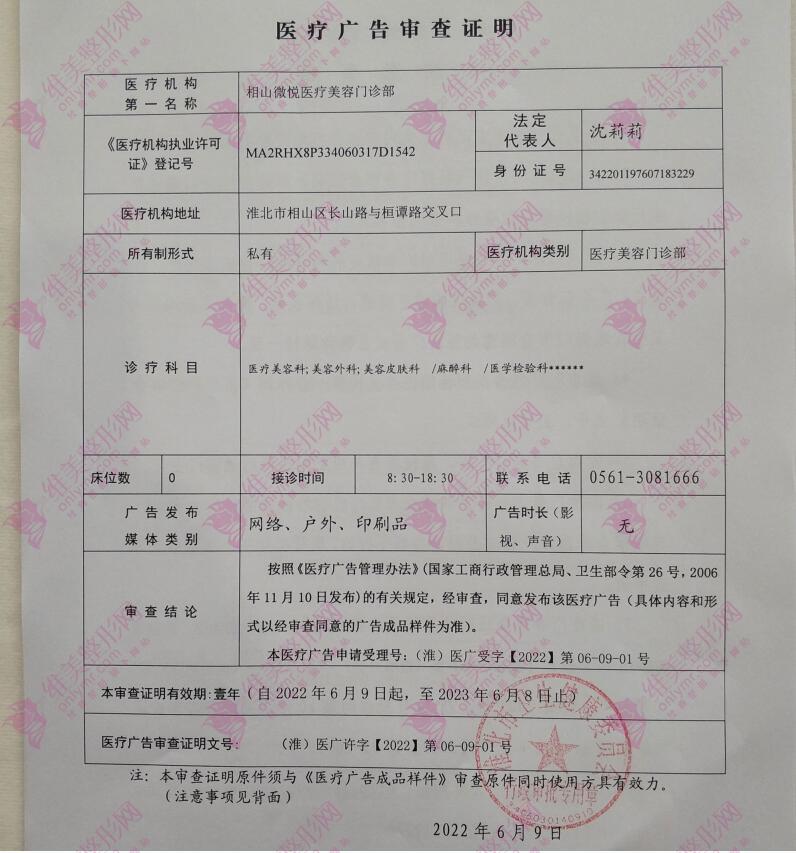 医疗广告审查证明
医疗机构
第一名称
相山微悦医疗美容门诊部
《医疗机构执业许可
证》登记号
MA2RHX8P334060317D1542
法定
代表人
沈莉莉
身份证号
342201197607183229
医疗机构地址
淮北市相山区长山路与桓谭路交叉口
所有制形式
私有
医疗机构类别
医疗美容门诊部
诊疗科目
医疗美容科;美容外科;美容皮肤科 /麻醉科 /医学检验科******
床位数
0
接诊时间
8:30-18:30
联系电话
0561-3081666
广告发布
媒体类别
网络、户外、印刷品
广告时长(影
视、声音)
无
审查结论
按照《医疗广告管理办法》(国家工商行政管理总局、卫生部令第26号,2006
年11月10日发布)的有关规定,经审查,同意发布该医疗广告(具体内容和形
式以经审查同意的广告成品样件为准)。
本医疗广告申请受理号:(淮)医广受字【2022】第06-09-01号
本审查证明有效期:壹年(自2022年6月9日起,至2023年6月8日止)
医疗广告审查证明文号: (淮)医广许字【2022】第06-09-01号
注: 本审查证明原件须与《医疗广告成品样件》审查原件同时使用方具有效力。
(注意事项见背面)
2022年6月9日
淮北市卫生健康委员会
行政审批专用章
维美整形网
onlymr.com